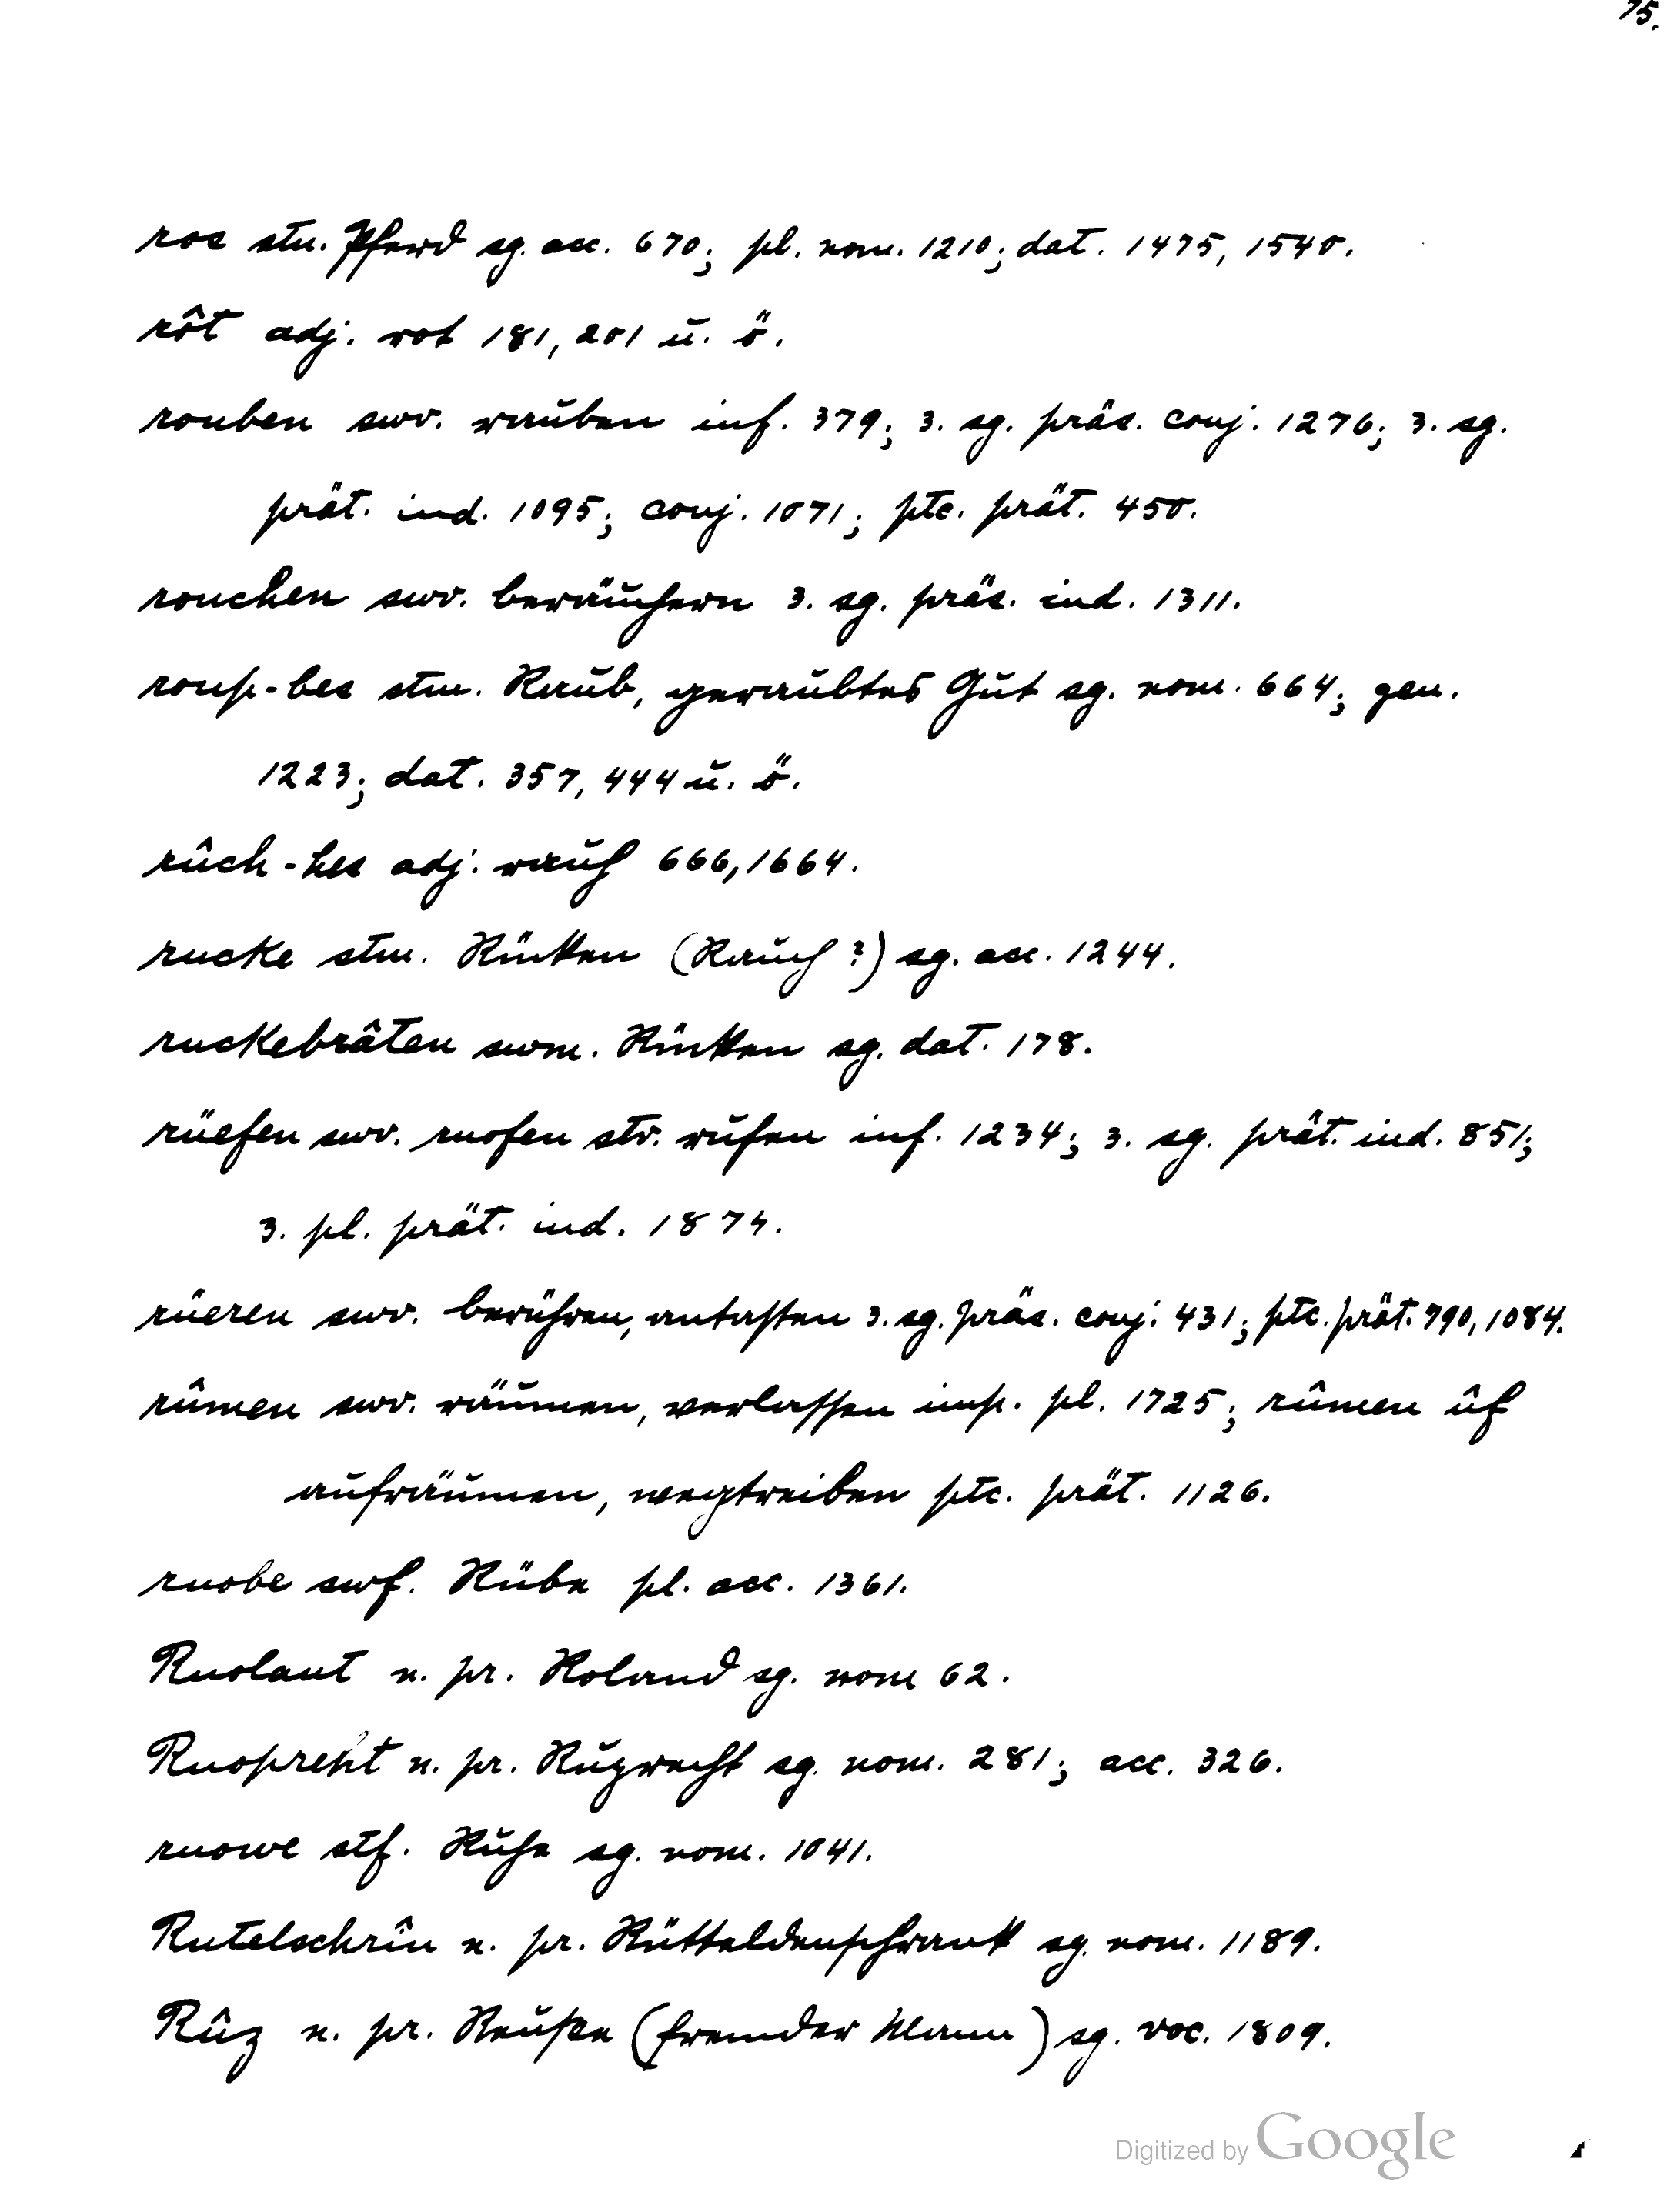 75.
ros stn. Pferd sg. acc. 670; pl. nom. 1210; dat. 1475, 1540.
rôt adj. rot 181, 201 u. ö.
rouben swv. rauben inf. 379; 3. sg. präs. conj. 1276; 3. sg.
prät. ind. 1095; conj. 1071; ptc. prät. 450.
rouchen swv. beräuchern 3. sg. präs. ind. 1311.
roup-bes stm. Raub, geraubtes Gut sg. nom. 664; gen.
1223; dat. 357, 444 u. ö.
rûch-hes adj. rauh 666, 1664.
rucke stm. Rücken (Rauch?) sg. acc. 1244.
ruckebrâten swm. Rücken sg. dat. 178.
rüefen swv. ruofen stv. rufen inf. 1234; 3. sg. prät. ind. 851;
3. pl. prät. ind. 1874.
rüeren swv. berühren, antasten 3. sg. präs. conj. 431; ptc. prät. 790, 1084.
rûmen swv. räumen, verlassen imp. pl. 1725; rûmen ûf
aufräumen, wegtreiben ptc. prät. 1126.
ruobe swf. Rübe pl. acc. 1361.
Ruolant n. pr. Roland sg. nom 62.
Ruopreht n. pr. Ruprecht sg. nom. 281; acc. 326.
ruowe stf. Ruhe sg. nom. 1041.
Rutelschrîn n. pr. Rütteldenschrank sg. nom. 1189.
Rûz n. pr. Reuße (fremder Mann) sg. voc. 1809.
Digitized by Google